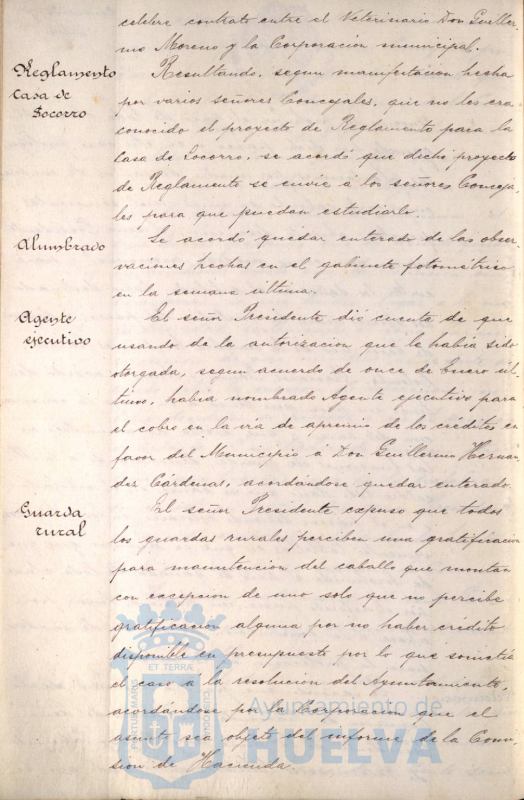 celebre contrato entre el Veterinario Don Guiller-
mo Moreno y la Corporacion municipal.
Reglamento
Casa de
Socorro
Resultando, segun manifestacion hecha
por varios señores Concejales, que no les era
conocido el proyecto de Reglamento para la
Casa de Socorro, se acordó que dicho proyecto
de Reglamento se envie á los señores Conceja-
les para que puedan estudiarlo.
Alumbrado
Se acordó quedar enterado de las obser-
vaciones hechas en el gabinete fotométrico
en la semana última.
Agente
ejecutivo
El señor Presidente dió cuenta de que
usando de la autorizacion que le habia sido
otorgada, segun acuerdo de once de Enero úl-
timo, habia nombrado Agente ejecutivo para
el cobro en la vía de apremio de los créditos en
favor del Municipio á Don Guillermo Hernan-
dez Cárdenas, acordándose quedar enterado.
Guarda
rural
El señor Presidente expuso que todos
los guardas rurales perciben una gratificacion
para manutencion del caballo que montan
con excepcion de uno solo que no percibe
gratificacion alguna por no haber crédito
disponible en presupuesto por lo que sometia
el caso a la resolucion del Ayuntamiento,
acordándose por la Corporacion que el
asunto sea objeto del informe de la Comi-
sion de Hacienda.
ET TERRÆ
PORTUS MARIS
CUSTODIA
Ayuntamiento de
HUELVA